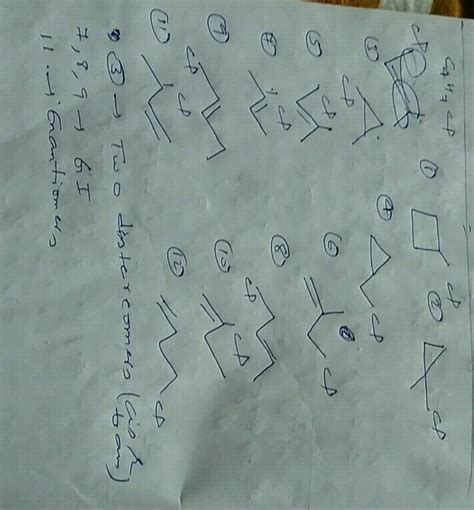 C4H7 Cl
Cl
① Cl ② Cl
③ Cl ④ Cl
⑤ Cl ⑥ Cl
⑦ Cl ⑧ Cl
⑨ Cl ⑩ Cl
⑪ Cl ⑫ Cl
③ → Two diastereomers (cis &
trans)
7, 8, 9 → GI
11 → Enantiomers